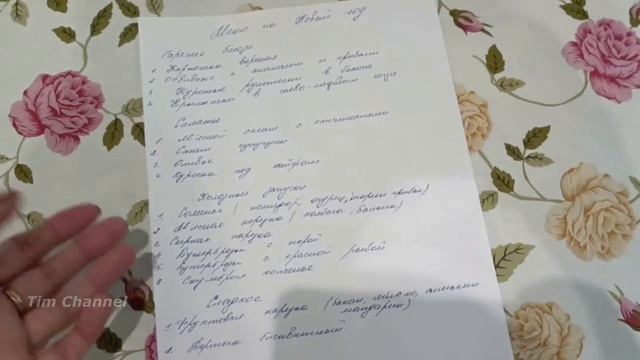 Меню на Новый год
Горячие блюда
1. Картошка вареная
2. Отбивные с ананасом и грибами
3. Куриные рулетики в беконе
4. Крылышки в соево-медовом соусе
Салаты
1. Мясной салат с копченостями
2. Салат
3. Оливье
4. Курочка под
Холодные закуски
1. Соленье (помидор, огурец, марин грибы)
2. Мясная нарезка (колбаса, балык)
3. Сырная нарезка
4. Бутерброды с икрой
5. Бутерброды с красной рыбой
6. Скумбрия копченая
Сладкое
1. Фруктовая нарезка (банан, яблоко, апельсин
мандарин)
2.
Tim Channel